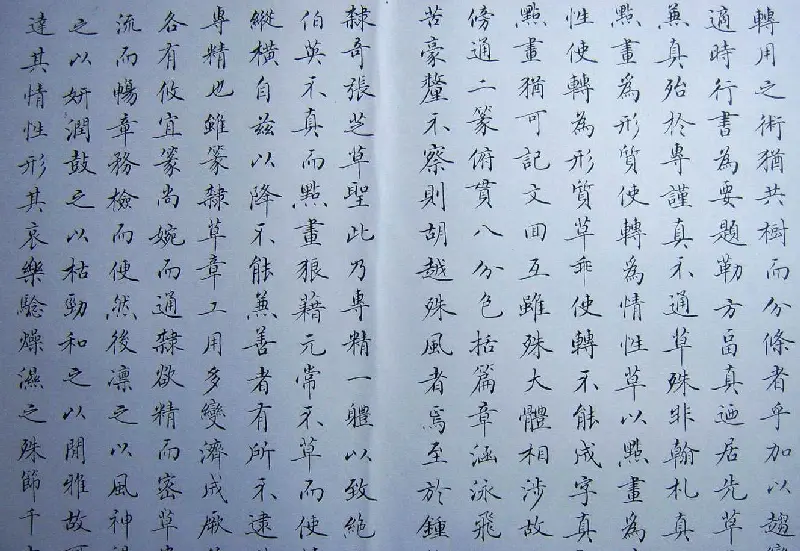 轉用之術猶共樹而分條者乎加以趨
適時行書為要題勒方畐真迺居先草
兼真殆於專謹真不通草殊非翰札真
點畫為形質使轉為情性草以點畫為
性使轉為形質草乖使轉不能成字真
點畫猶可記文回互雖殊大體相涉故
傍通二篆俯貫八分包括篇章涵泳飛
苦豪釐不察則胡越殊風者焉至於鍾
隸奇張芝草聖此乃專精一體以致絕
伯英不真而點畫狼藉元常不草而使
縱橫自茲以降不能兼善者有所不逮
專精也雖篆隸草章工用多變濟成厥
各有攸宜篆尚婉而通隸欲精而密草
流而暢章務檢而便然後凜之以風神
之以妍潤鼓之以枯勁和之以閒雅故
達其情性形其哀樂驗燥濕之殊節千